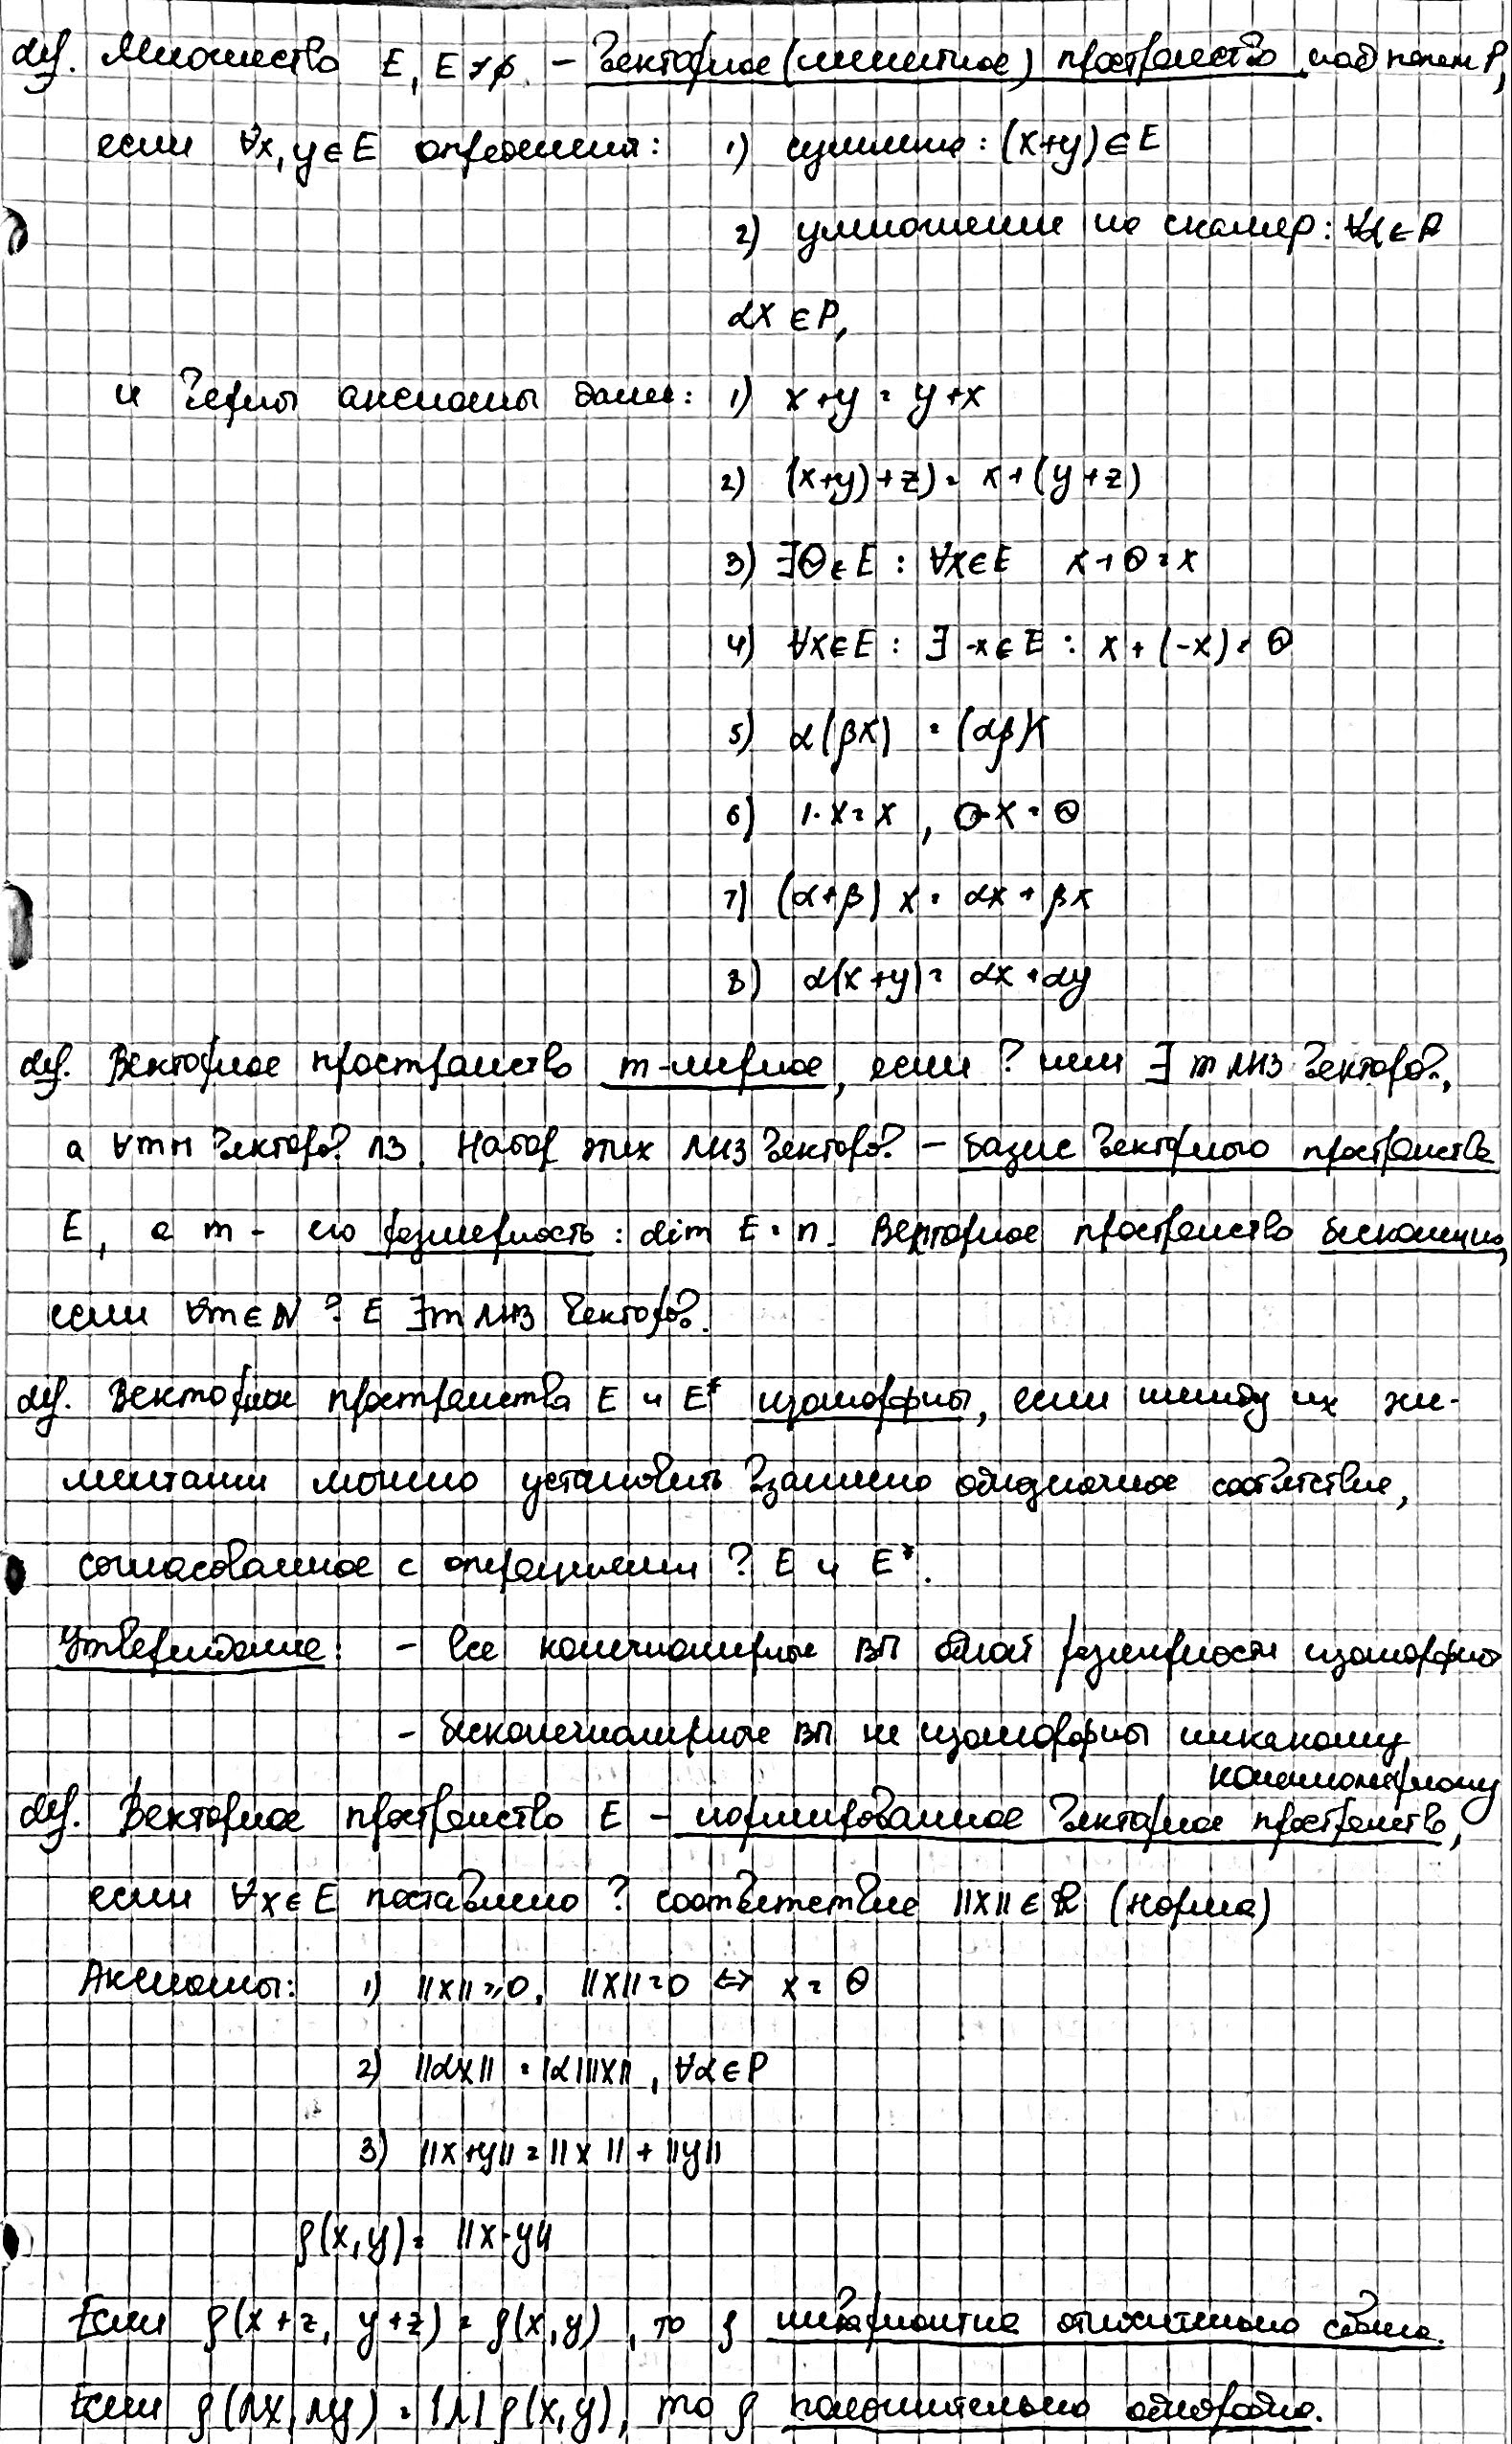 def. Множество E, E ≠ ∅ - векторное (линейное) пространство над полем P,
если ∀x, y ∈ E определены: 1) сумма: (x+y) ∈ E
2) умножение на скаляр: ∀α ∈ P
αx ∈ P,
и верны аксиомы далее: 1) x+y = y+x
2) (x+y)+z) = x+(y+z)
3) ∃Θ ∈ E : ∀x ∈ E x+Θ = x
4) ∀x ∈ E : ∃ -x ∈ E : x + (-x) = Θ
5) α(βx) = (αβ)x
6) 1·x = x, 0·x = Θ
7) (α+β) x = αx + βx
8) α(x+y) = αx + αy
def. Векторное пространство m-мерное, если в нем ∃ m ЛНЗ векторов,
а ∀m+1 векторов ЛЗ. Набор этих ЛНЗ векторов - базис векторного пространства
E, а m - его размерность : dim E = n. Векторное пространство бесконечно,
если ∀m ∈ N в E ∃ m ЛНЗ векторов.
def. Векторные пространства E и E* изоморфны, если между их эле-
ментами можно установить взаимно однозначное соответствие,
согласованное с операциями в E и E*.
Утверждение: - все конечномерные ВП одной размерности изоморфны
- бесконечномерные ВП не изоморфны никакому
конечномерному
def. Векторное пространство E - нормированное векторное пространство,
если ∀x ∈ E поставлено в соответствие ||x|| ∈ R (норма)
Аксиомы: 1) ||x|| ≥ 0, ||x|| = 0 ⇔ x = Θ
2) ||αx|| = |α| ||x||, ∀α ∈ P
3) ||x+y|| = ||x|| + ||y||
ρ(x, y) = ||x-y||
Если ρ(x+z, y+z) = ρ(x, y), то ρ инвариантна относительно сдвига.
Если ρ(λx, λy) = |λ| ρ(x, y), то ρ положительно однородна.